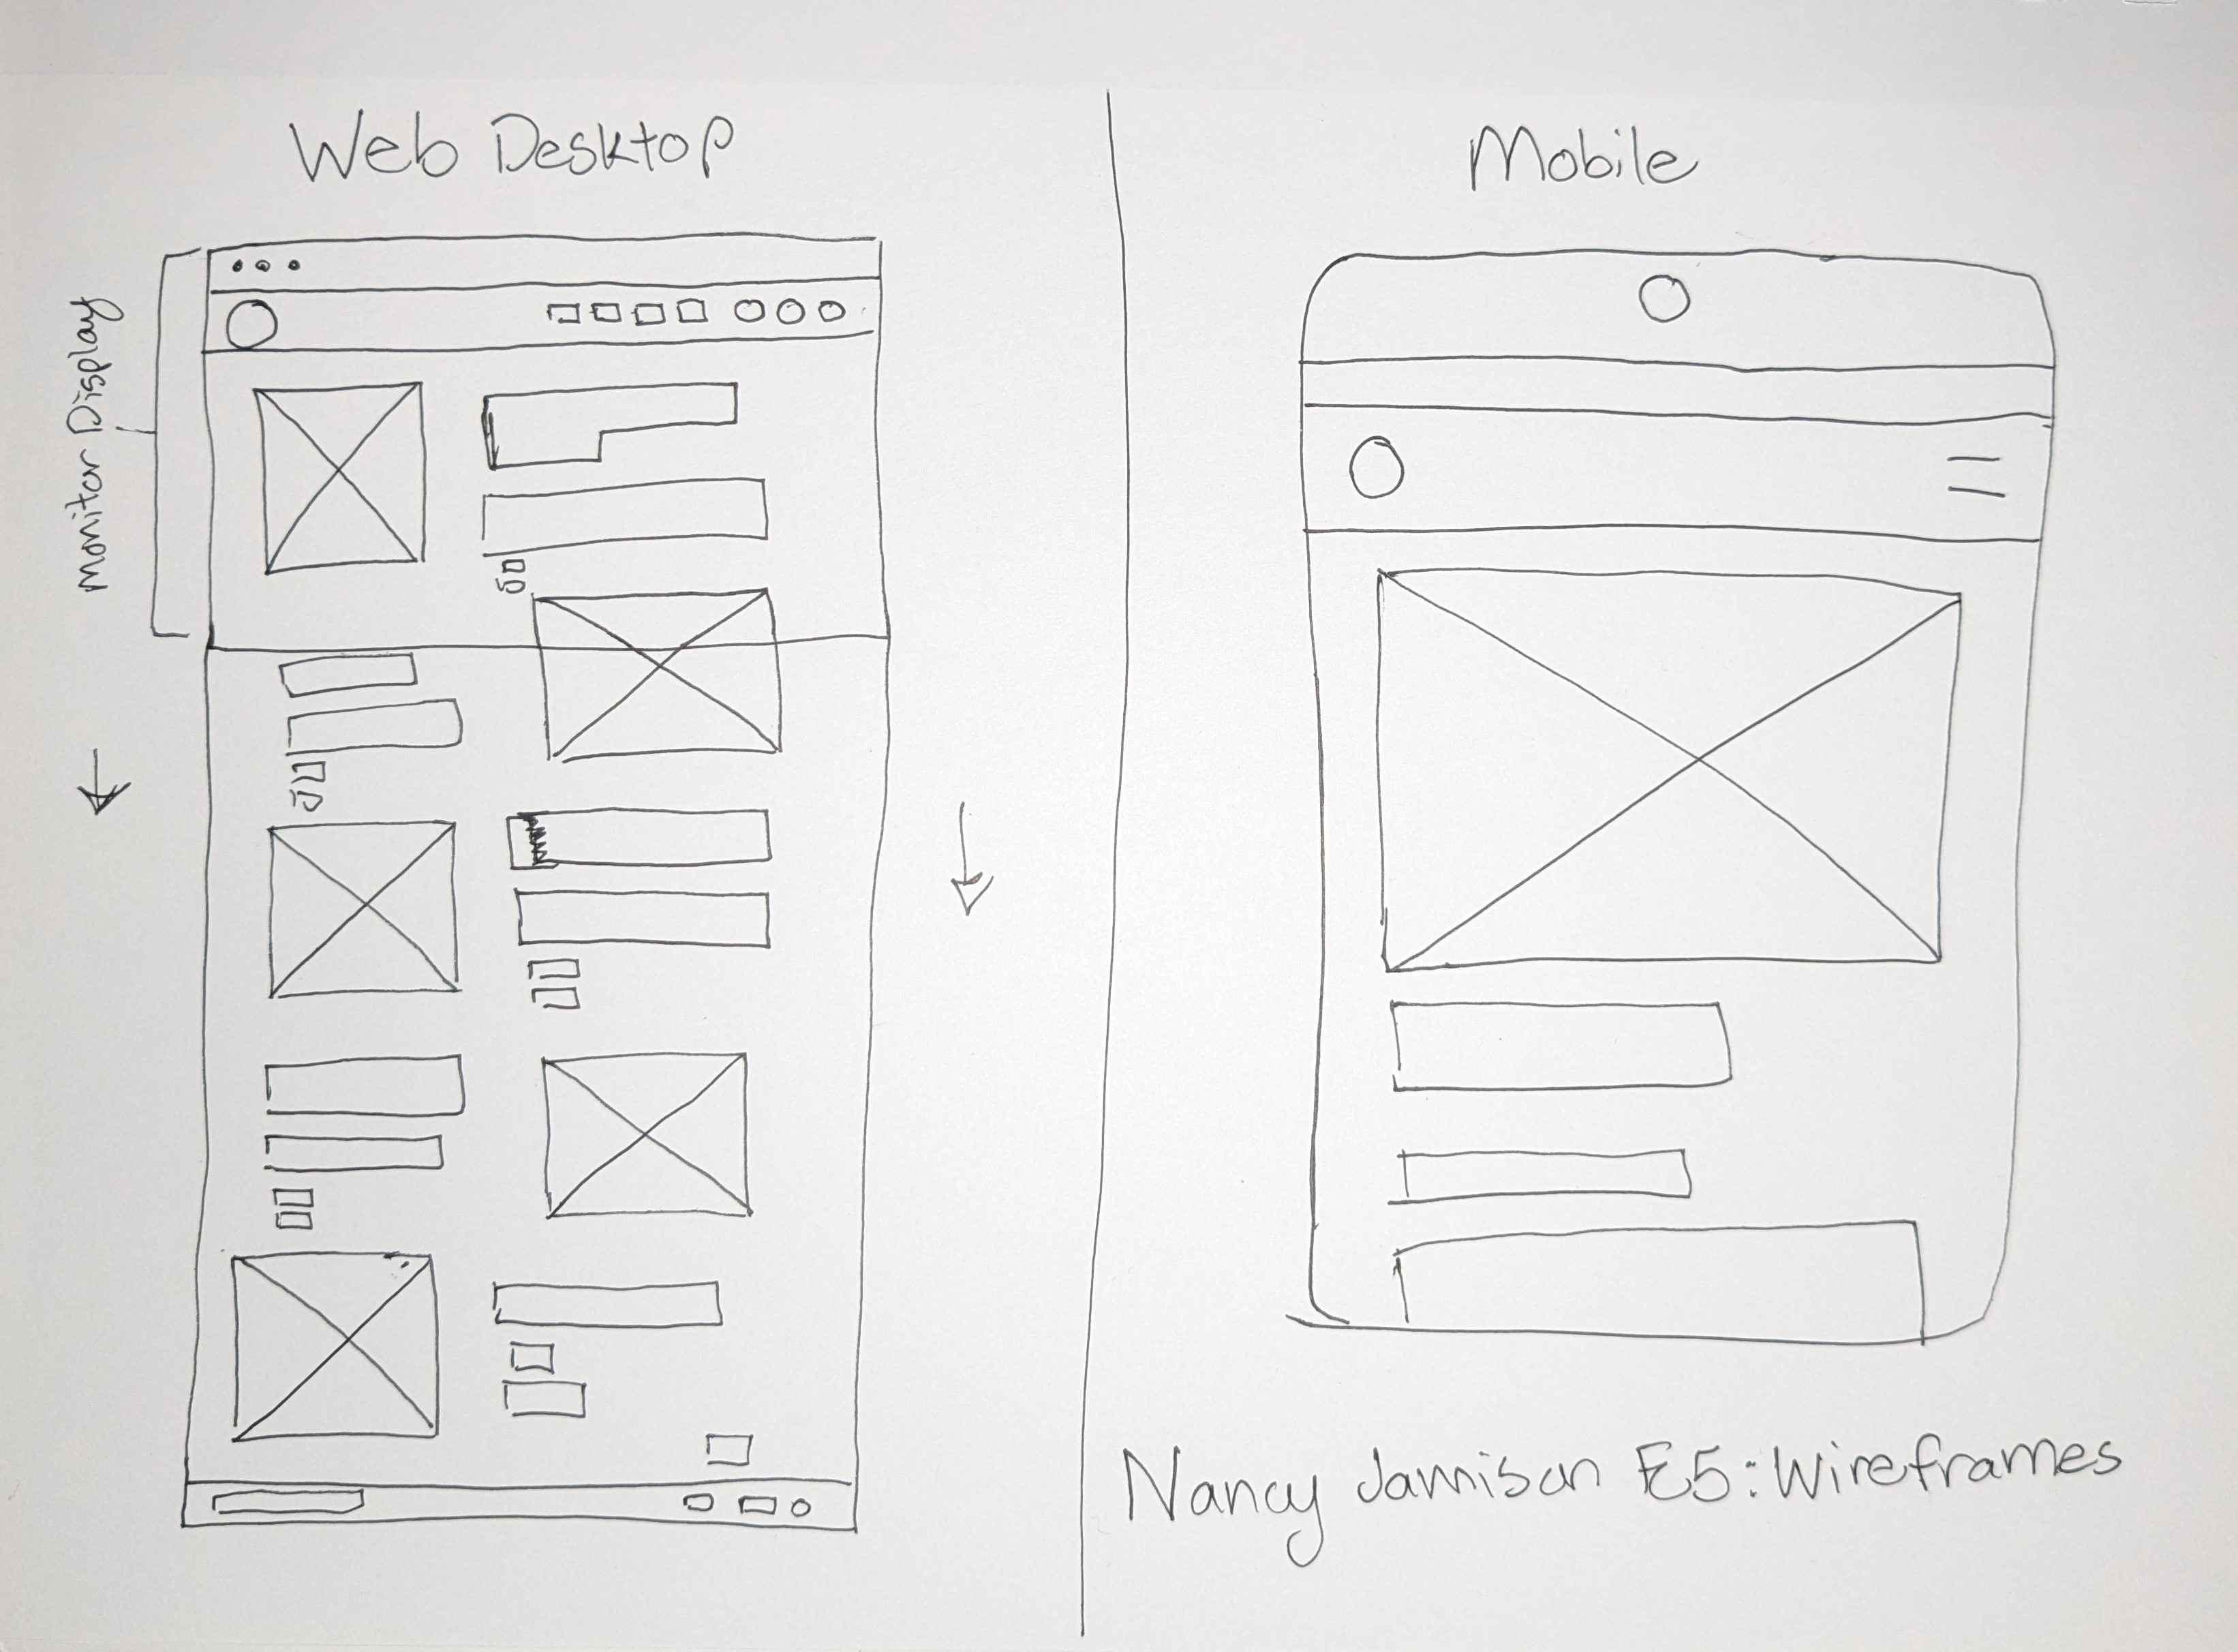 Web Desktop
Monitor Display
Mobile
Nancy Jamison E5: Wireframes